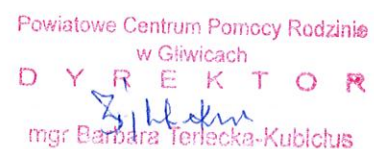 Powiatowe Centrum Pomocy Rodzinie
w Gliwicach
D Y R E K T O R
mgr Barbara Terlecka-Kubicius